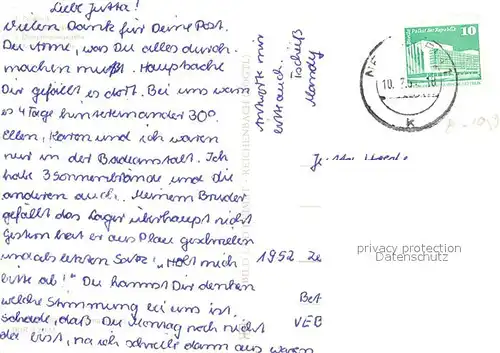 Liebe Jutta!
Vielen Dank für Deine Post.
Du Arme, was Du alles durch-
machen mußt. Hauptsache
Dir gefällt es dort. Bei uns waren
es 4 Tage hintereinander 30°.
Ellen, Karen und ich waren
nur in der Badeanstalt. Ich
habe 3 Sonnenbrände und die
anderen auch. Meinem Bruder
gefällt das Lager überhaupt nicht
gestern hat er aus Plau geschrieben
und als letzten Satz: „Holt mich
bitte ab!" Du kannst Dir denken
welche Stimmung bei uns ist.
schade, daß Du Montag noch nicht
da bist, na ich schreibe dann aus
Antworte mir
erst auch. Tschüß
Mandy
REICHENBACH (VOGTL)
Palast der Republik
10
DDR
10. 7.
K
1952
Bet
VEB
privacy protection
Datenschutz AnsichtskartenVersand